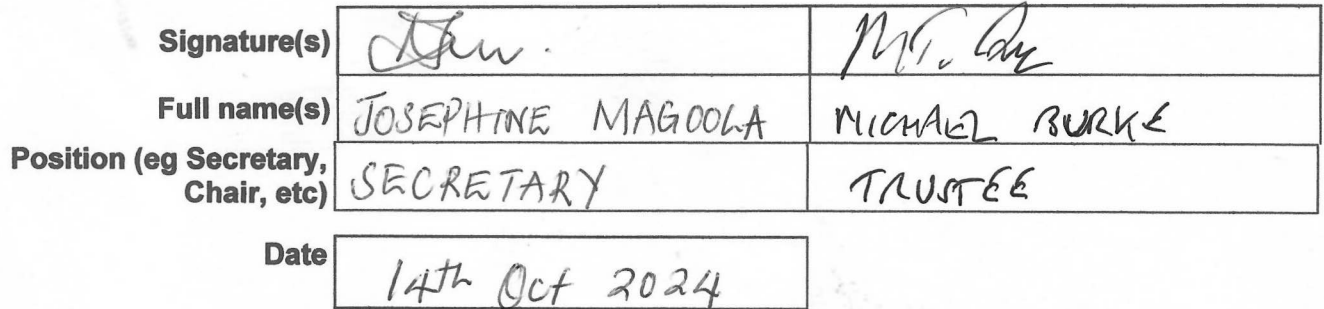 Signature(s)
Full name(s) JOSEPHINE MAGOOLA MICHAEL BURKE
Position (eg Secretary,
Chair, etc) SECRETARY TRUSTEE
Date 14th Oct 2024